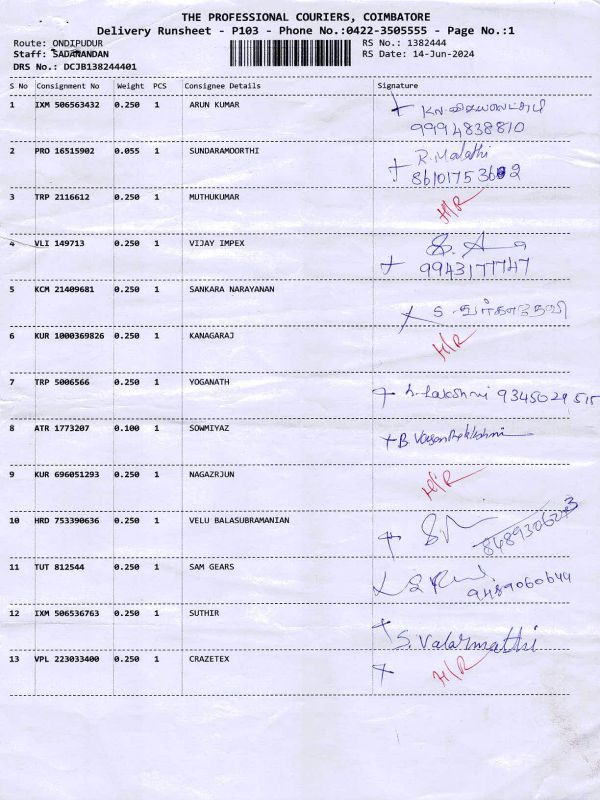 THE PROFESSIONAL COURIERS, COIMBATORE
Delivery Runsheet - P103 - Phone No.:0422-3505555 - Page No.:1
Route: ONDIPUDUR
RS No.: 1382444
Staff: SADANANDAN
RS Date: 14-Jun-2024
DRS No.: DCJB138244401
S No Consignment No Weight PCS Consignee Details Signature
1 IXM 506563432 0.250 1 ARUN KUMAR
9994838810
2 PRO 16515902 0.055 1 SUNDARAMOORTHI R. Malathi
3 TRP 2116612 0.250 1 MUTHUKUMAR H/R
4 VLI 149713 0.250 1 VIJAY IMPEX
9943177747
5 KCM 21409681 0.250 1 SANKARA NARAYANAN
6 KUR 1000369826 0.250 1 KANAGARAJ H/R
7 TRP 5006566 0.250 1 YOGANATH 9345029515
8 ATR 1773207 0.100 1 SOWMIYAZ
9 KUR 696051293 0.250 1 NAGAZRJUN H/R
10 HRD 753390636 0.250 1 VELU BALASUBRAMANIAN
11 TUT 812544 0.250 1 SAM GEARS 9489060644
12 IXM 506536763 0.250 1 SUTHIR
S. Valarmathi
13 VPL 223033400 0.250 1 CRAZETEX H/R